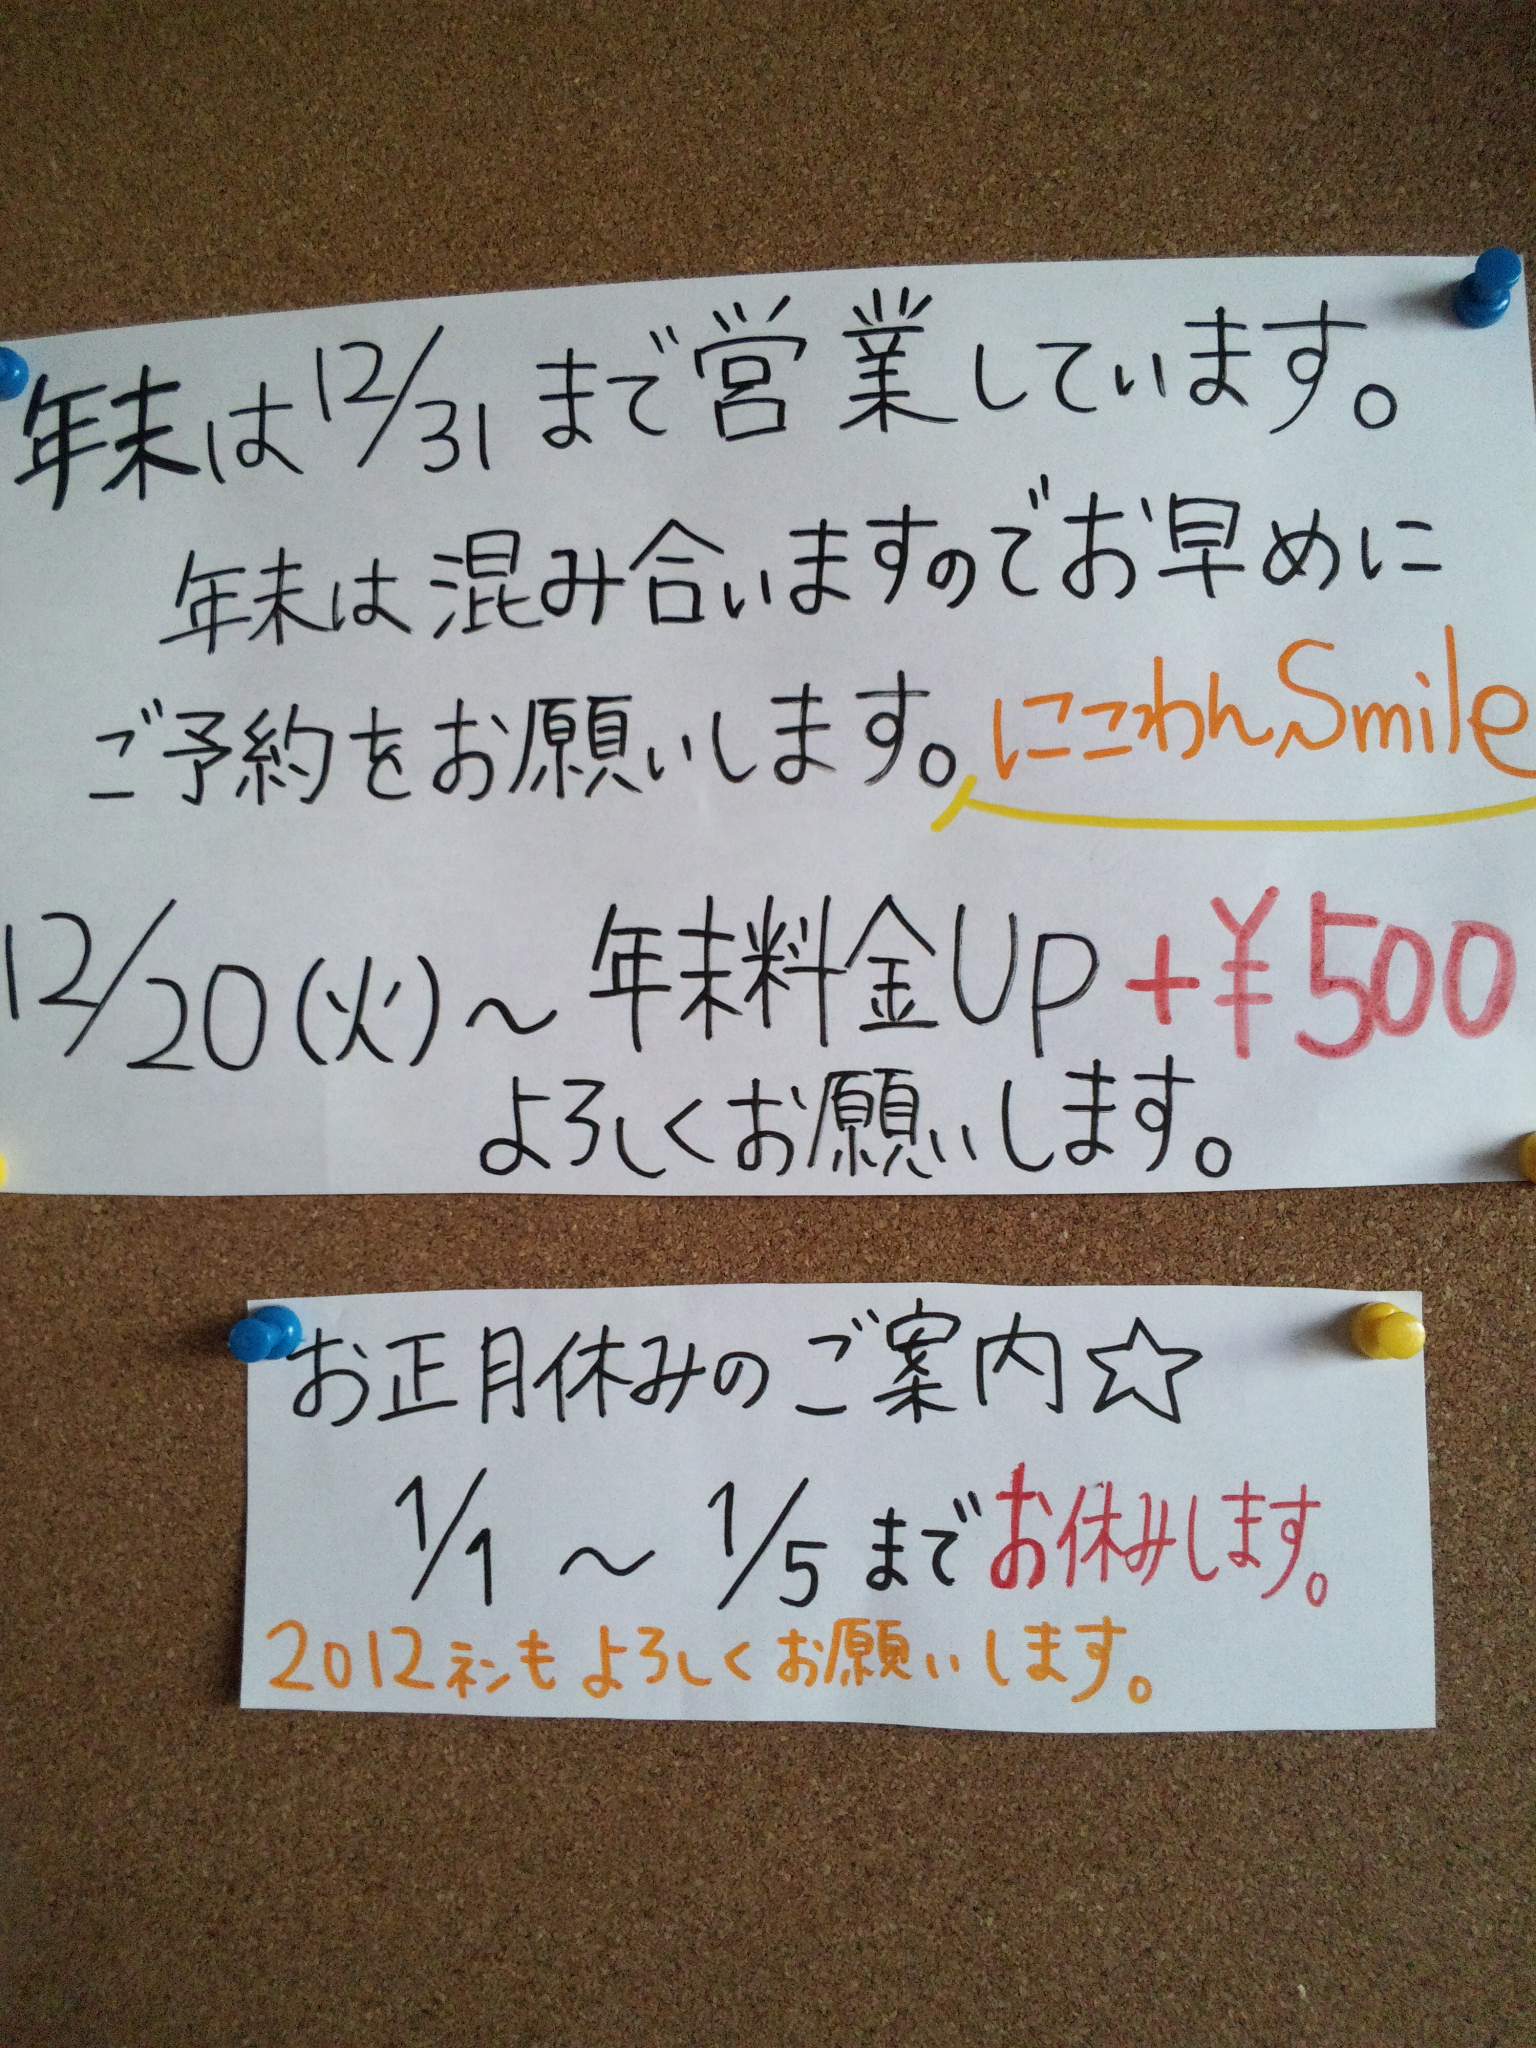 年末は12/31まで営業しています。
年末は混み合いますのでお早めに
ご予約をお願いします。にこわんSmile
12/20(火)～年末料金UP+¥500
よろしくお願いします。
お正月休みのご案内☆
1/1～1/5までお休みします。
2012ネンもよろしくお願いします。